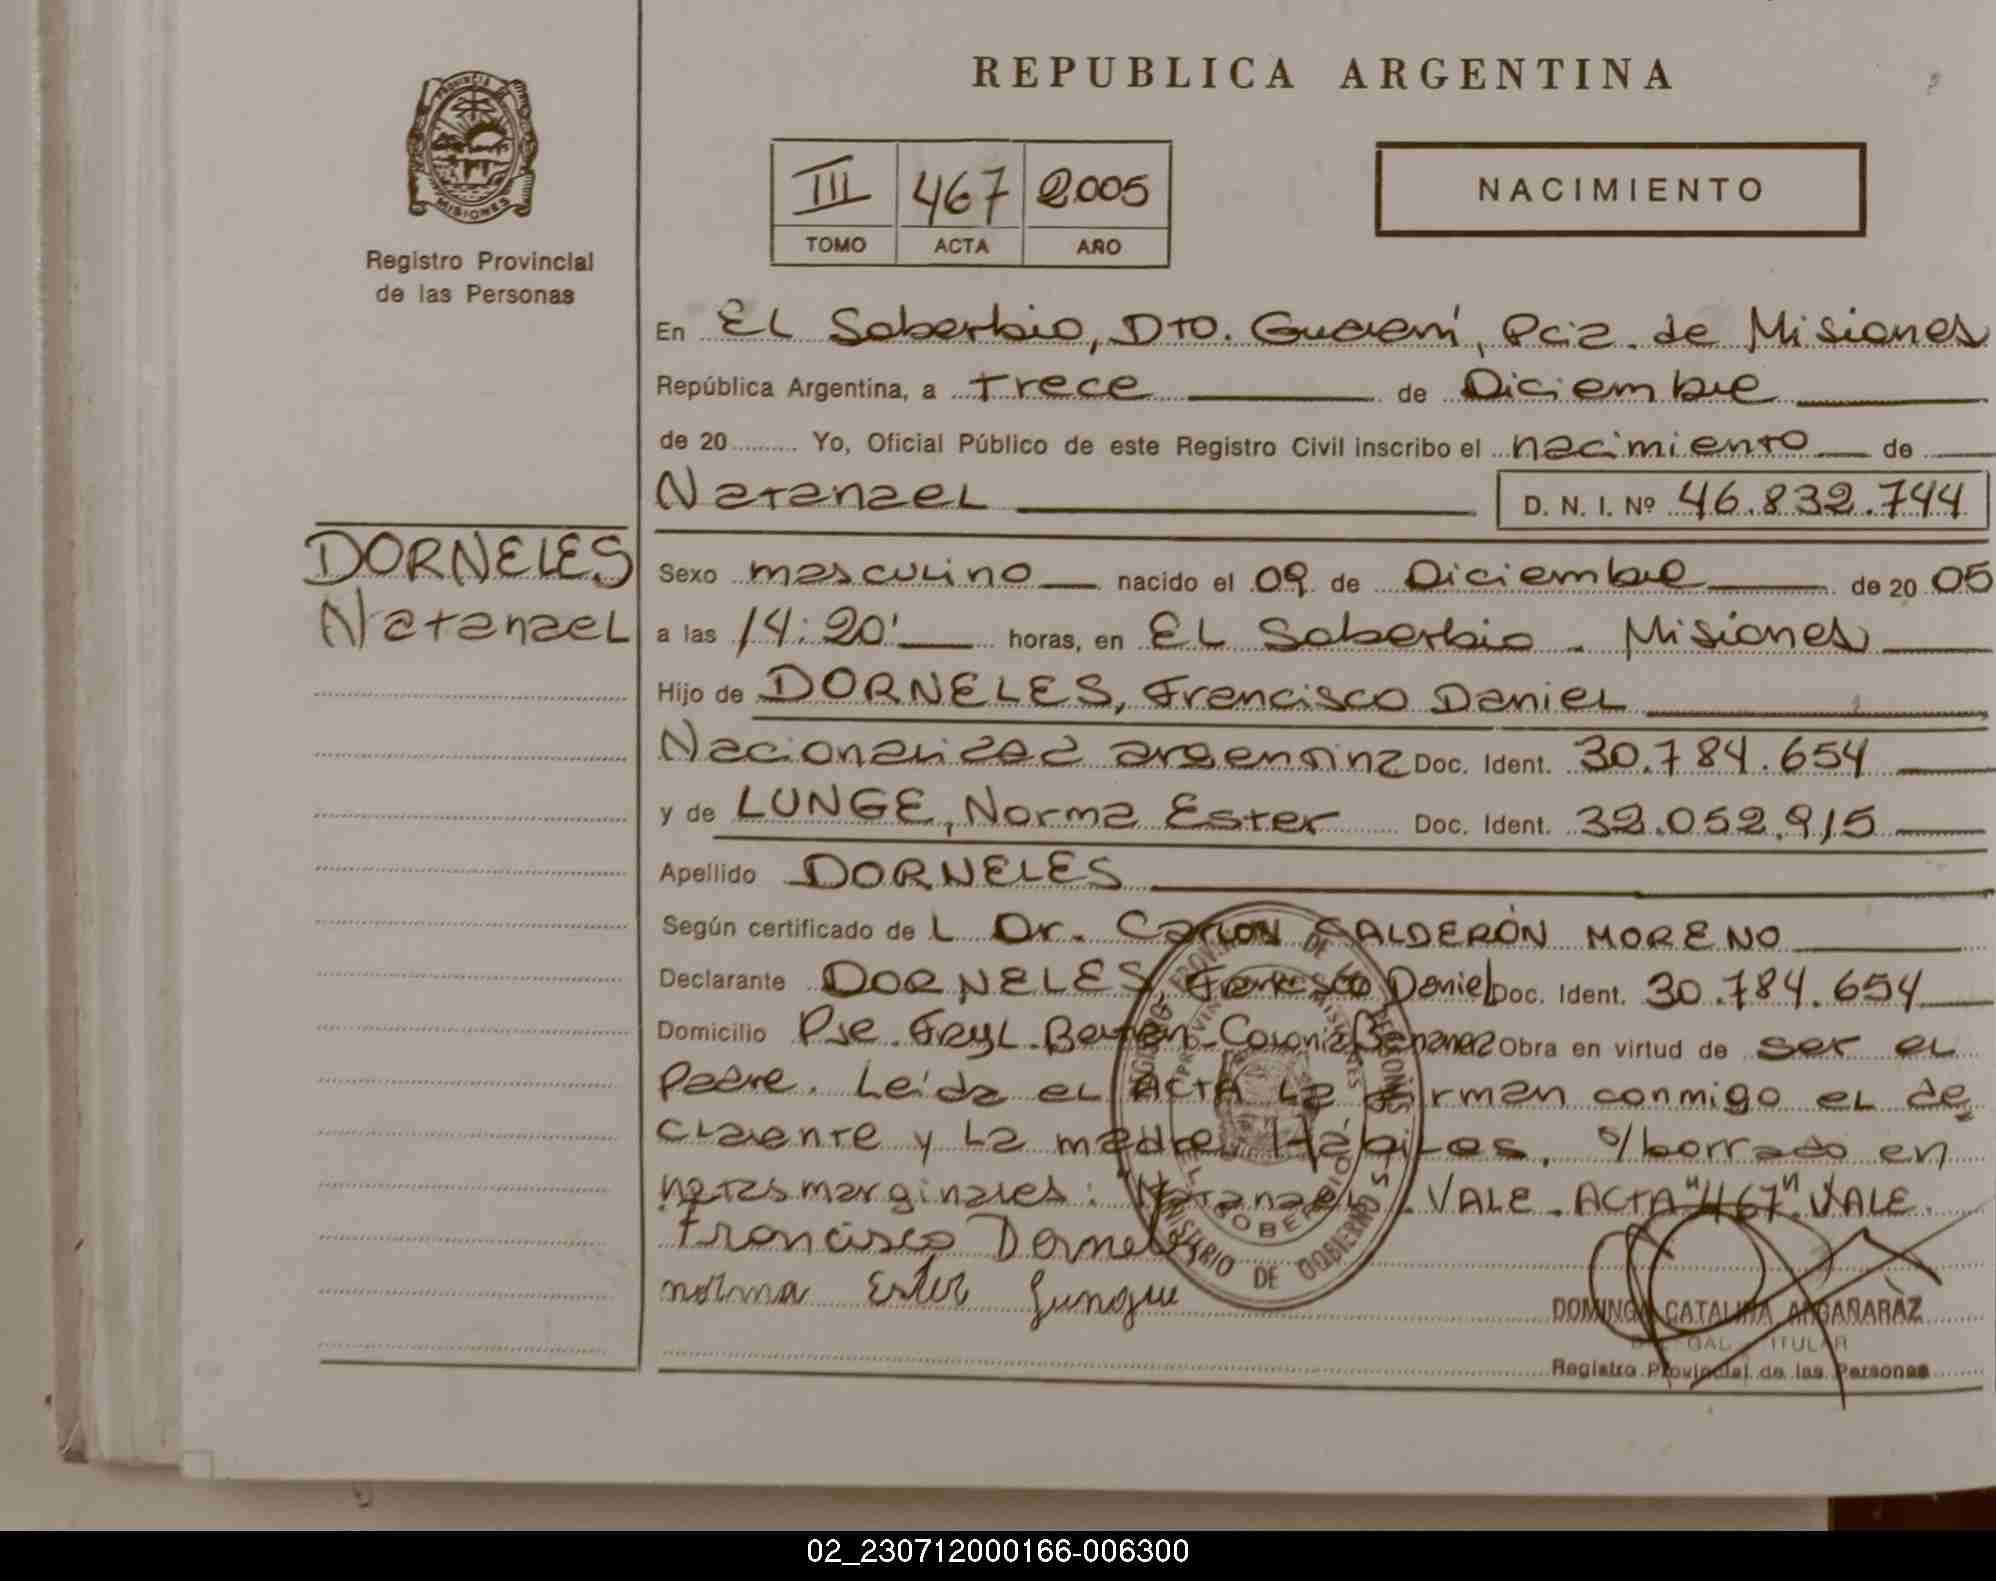 REPUBLICA ARGENTINA
PROVINCIA DE
MISIONES
Registro Provincial
de las Personas
III 467 2005
TOMO ACTA AÑO
NACIMIENTO
En EL Soberbio, Dto. Guaraní, Pcia. de Misiones
República Argentina, a trece de Diciembre
de 20 Yo, Oficial Público de este Registro Civil inscribo el nacimiento de
Natanael D. N. I. Nº 46.832.744
DORNELES
Natanael
Sexo masculino nacido el 09 de Diciembre de 2005
a las 14:20' horas, en EL Soberbio - Misiones
Hijo de DORNELES, Francisco Daniel
Nacionalidad argentina Doc. Ident. 30.784.654
y de LUNGE, Norma Ester Doc. Ident. 32.052.915
Apellido DORNELES
Según certificado de L Dr. Carlos CALDERÓN MORENO
Declarante DORNELES, Francisco Daniel Doc. Ident. 30.784.654
Domicilio Pje. Colonia Obra en virtud de ser el
Padre. Leida el ACTA la firman conmigo el de
clarante y la madre Hábiles. s/borrado en
notas marginales: "Natanael". VALE. ACTA "467" VALE.
Francisco Dorneles
norma Ester
MINISTERIO DE GOBIERNO
EL SOBERBIO
DOMINGA CATALINA ARGAÑARAZ
Registro Provincial de las Personas
02_230712000166-006300